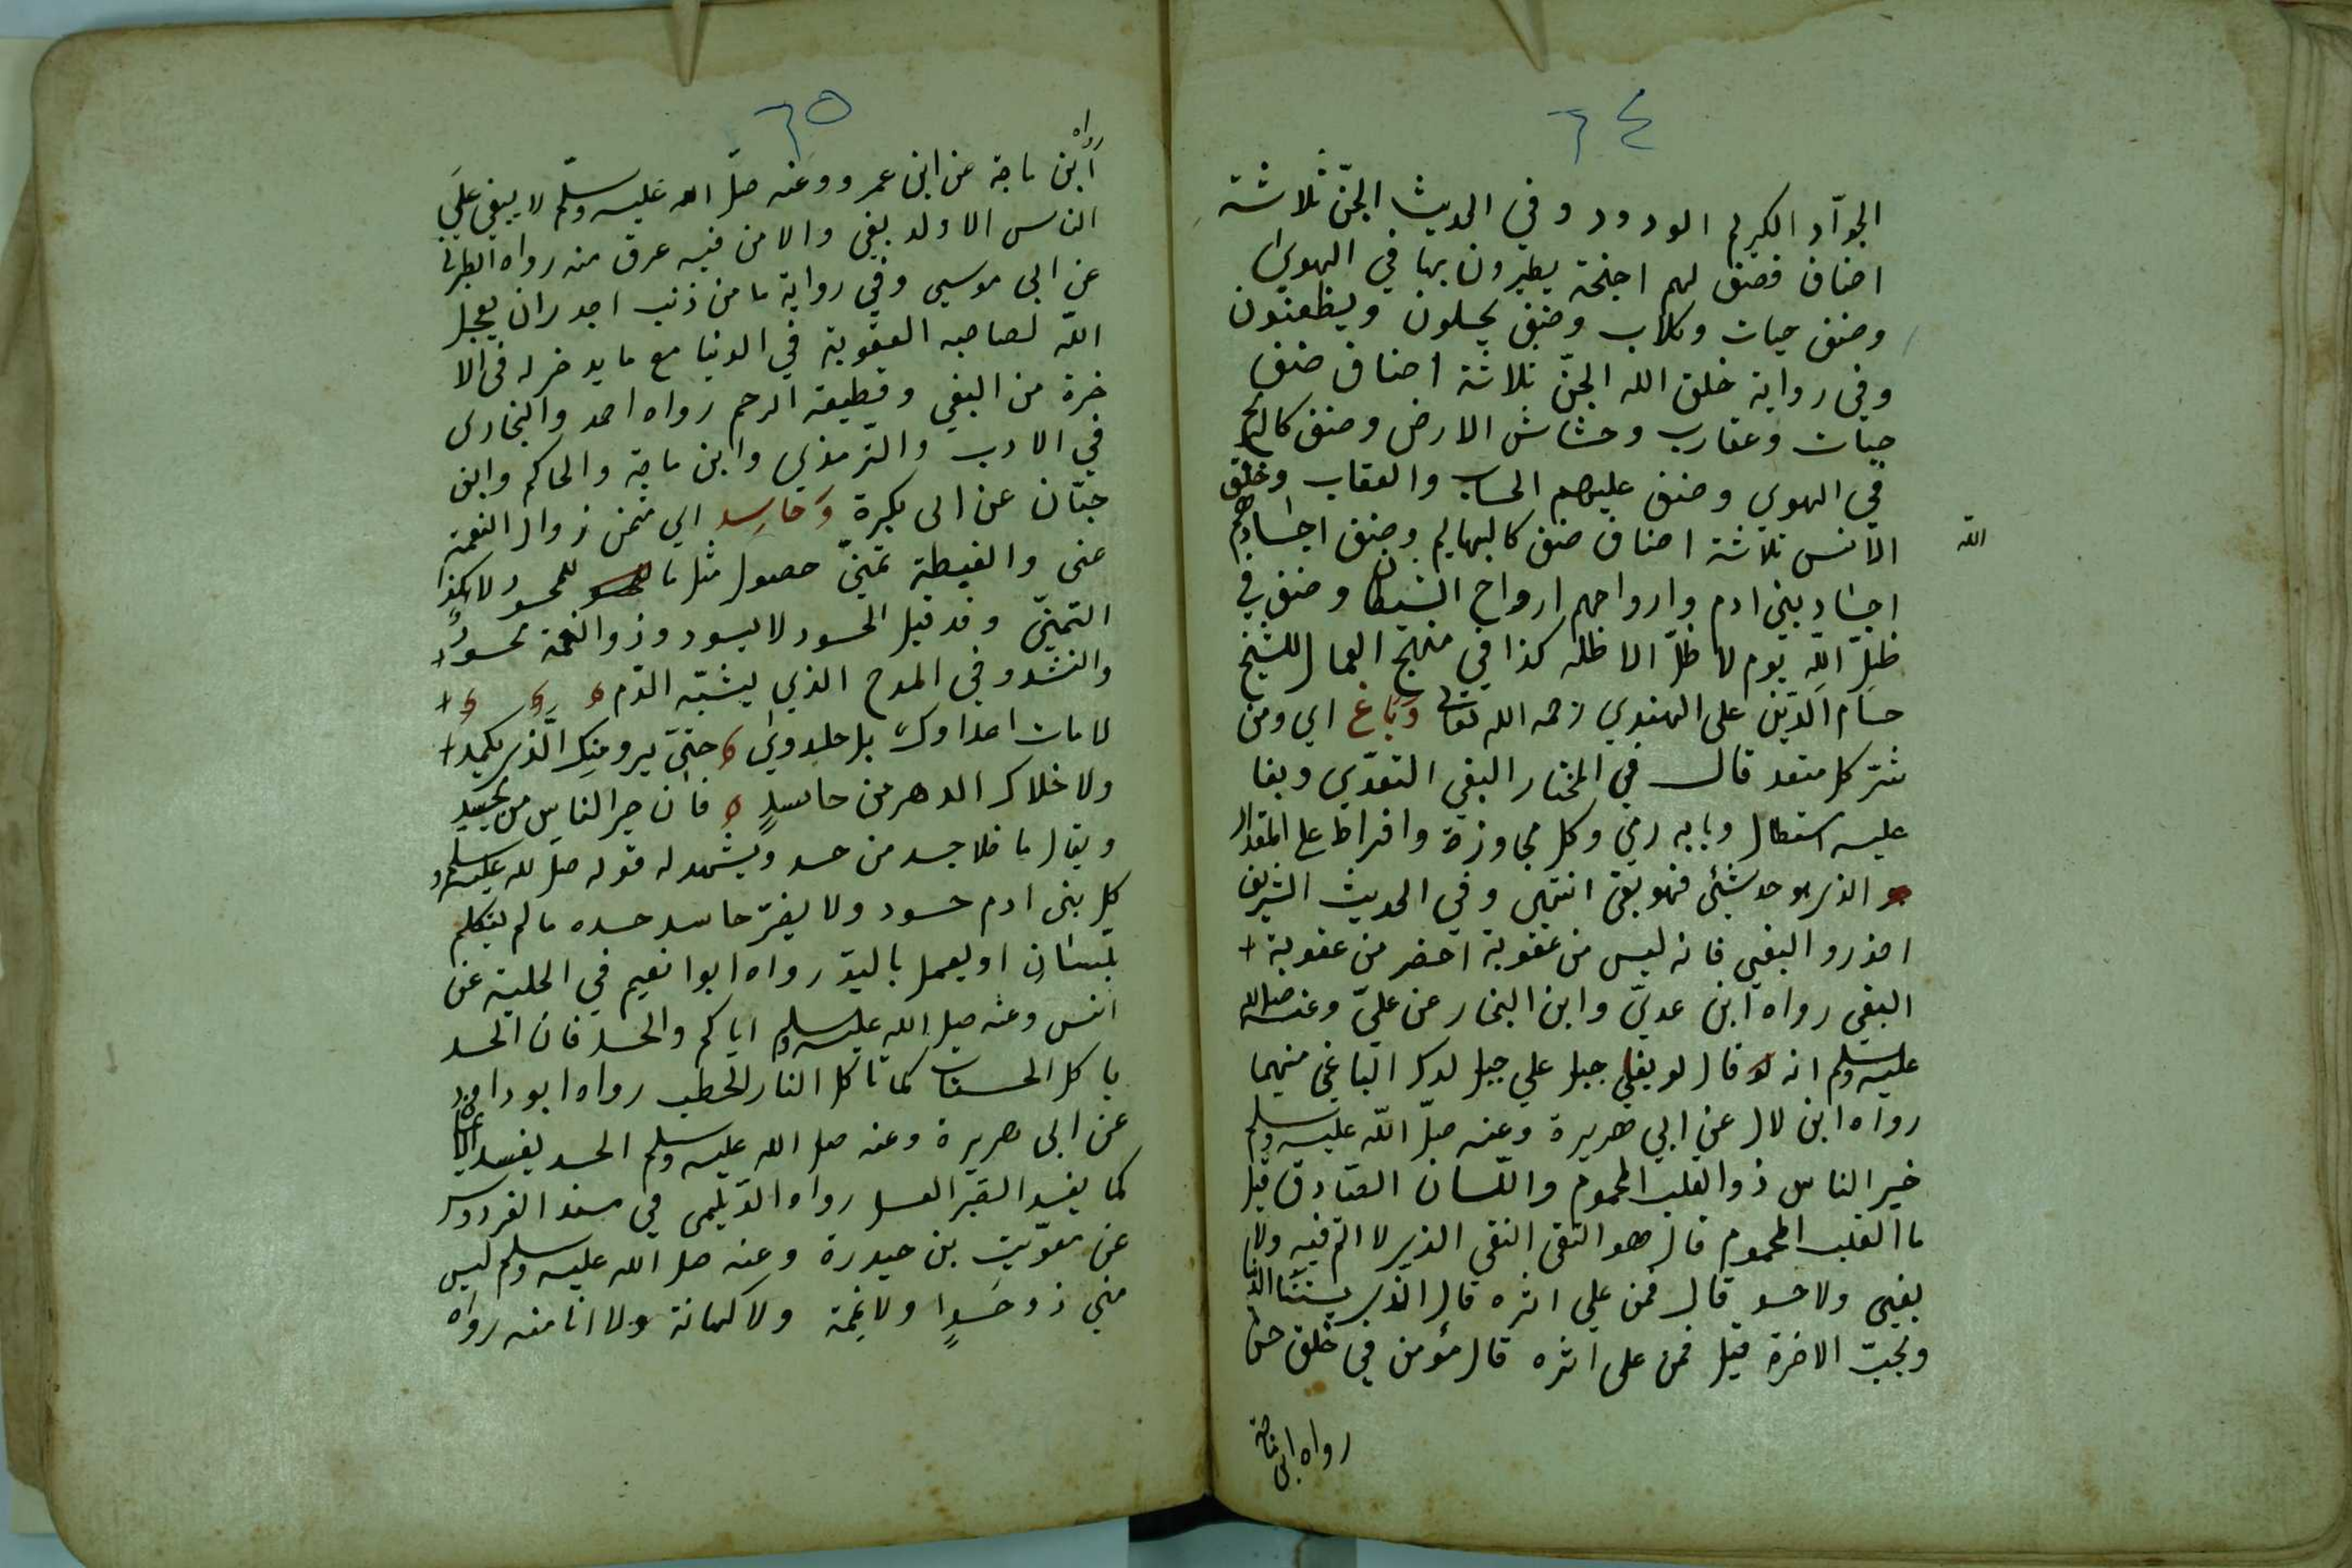 ٦٤
الجوّاد الكريم الودود وفي الحديث الجنّ ثلاثة
اصناف فصنف لهم اجنحة يطيرون بها في الهوي
وصنف حيات وكلاب وصنف يحلون ويظعنون
وفي رواية خلق الله الجنّ ثلاثة اصناف صنف
حيات وعقارب وحشاش الارض وصنف كالريح
في الهوي وصنف عليهم الحساب والعقاب وخلق
الله
الانس ثلاثة اصناف صنف كالبهايم وصنف اجسادهم
اجساد بني ادم وارواحهم ارواح الشيطان وصنف في
ظلّ الله يوم لا ظلّ الا ظله كذا في منهج العمال للشيخ
حسام الدين على الهندي رحمه الله تعالى وَبَاغٍ اي ومن
شرّ كل متعد قال في المختار البغي التعدّي وبغا
عليه استطال وبابه رمي وكل مجاوزة وافراط على المقدار
الذي هو حد شئ فهو بغي انتهى وفي الحديث الشريف
احذروا البغي فانه ليس من عقوبة احضر من عقوبة
البغي رواه ابن عديّ وابن النجار عن عليّ وعنه صلى الله
عليه وسلم انه قال لو بغي جبل علي جبل لدك الباغي منهما
رواه ابن لال عن ابي هريرة وعنه صلّ اللّه عليه وسلم
خير الناس ذو القلب المحموم واللسان الصادق قيل
ما القلب المحموم قال هو التقى النقى الذي لا اثم فيه ولا
بغي ولا حسد قال فمن علي اثره قال الّذي يشنأ الدنيا
ويحبّ الاخرة قيل فمن على اثره قال مؤمن في خلق حسن
رواه ابن ماجة
٦٥
رواه
ابن ماجة عن ابن عمرو وعنه صلّ الله عليه وسلّم لا يبغي علي
الناس الا ولد بغي والا من فيه عرق منه رواه الطبراني
عن ابي موسى وفي رواية ما من ذنب اجدر ان يعجل
اللّه لصاحبه العقوبة في الدنيا مع ما يدخر له في الا
خرة من البغي وقطيعة الرحم رواه احمد والبخارى
في الادب والترمذي وابن ماجة والحاكم وابن
حبّان عن ابى بكرة وَحَاسِدٍ اي متمن زوال النعمة
عنى والغبطة تمنّي حصول مثل ما للمحسود ولا
التمنّي وقد قيل الحسود لا يسود وذو النعمة محسود
وانشدو في المدح الذي يشبّه الذم
لا مات اعداوك بل خلدوا حتي يرو منك الّذي يكمد
ولا خلاك الدهر من حاسدٍ فان خير الناس من يحسد
ويقال ما خلا جسد من حسد ويشهد له قوله صلى الله عليه وسلم
كل بنى ادم حسود ولا يضرّ حاسد حسده ما لم يتكلم
بلسان او يعمل باليد رواه ابوا نعيم في الحلية عن
انس وعنه صلى الله عليه وسلم اياكم والحسد فان الحسد
ياكل الحسنات كما تاكل النار الحطب رواه ابو داود
عن ابى هريرة وعنه صلى الله عليه وسلم الحسد يفسد الايمان
كما يفسد الصبر العسل رواه الدّيلمى في مسند الفردوس
عن معوّية بن حيدرة وعنه صلى الله عليه وسلم ليس
منّي ذو حَسَدٍ ولا نميمة ولا كهانة ولا انا منه رواه